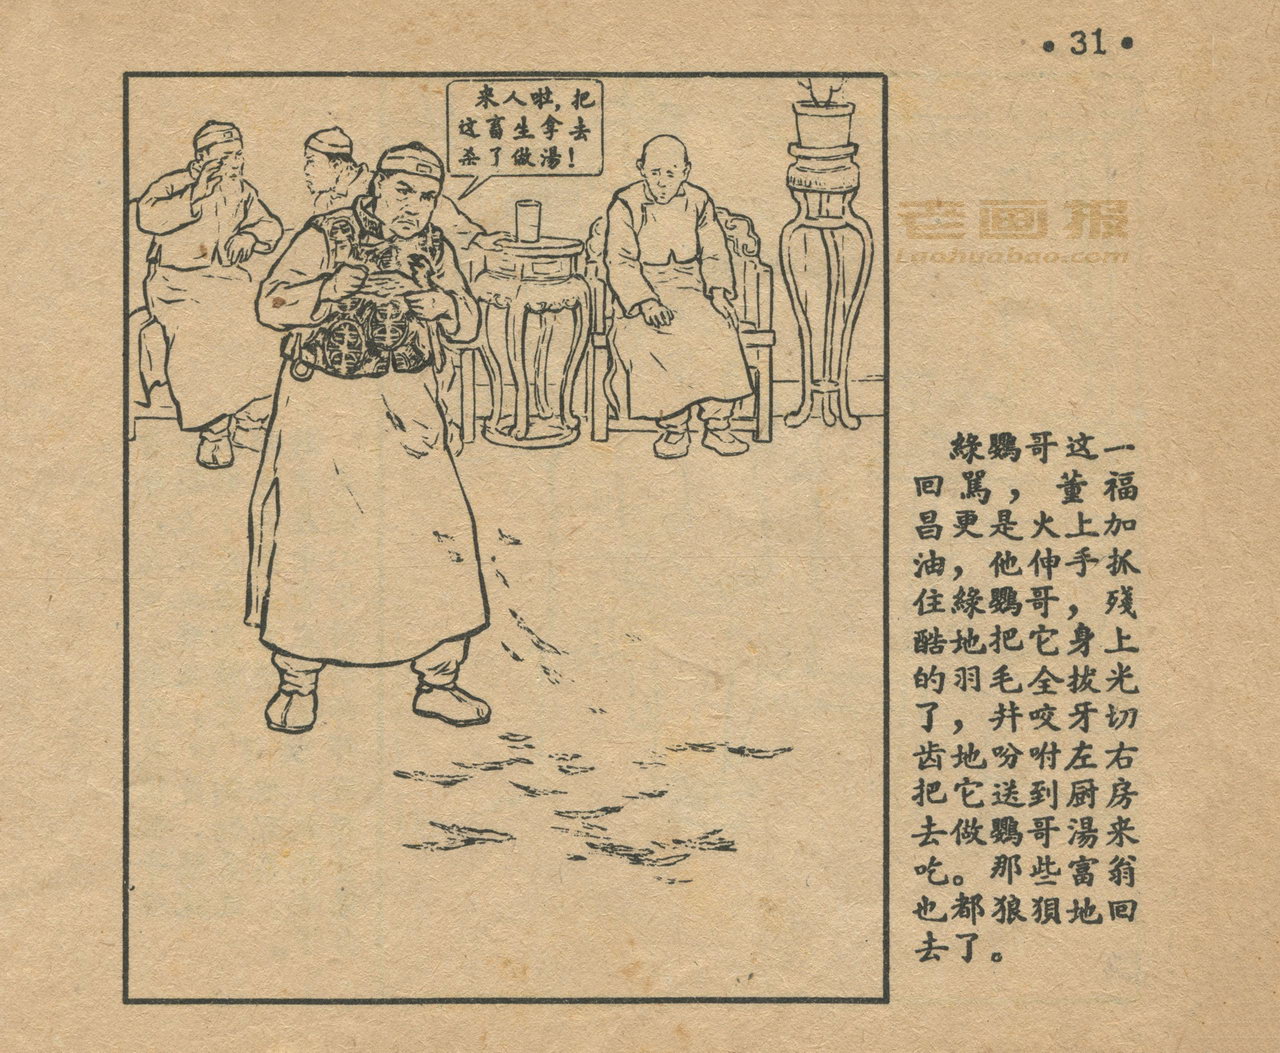 •31•
来人啦，把
这畜生拿去
杀了做湯！
老画报
Laohuabao.com
綠鹦哥这一
回駡，董福
昌更是火上加
油，他伸手抓
住綠鹦哥，殘
酷地把它身上
的羽毛全拔光
了，井咬牙切
齿地吩咐左右
把它送到厨房
去做鹦哥湯来
吃。那些富翁
也都狼狽地回
去了。